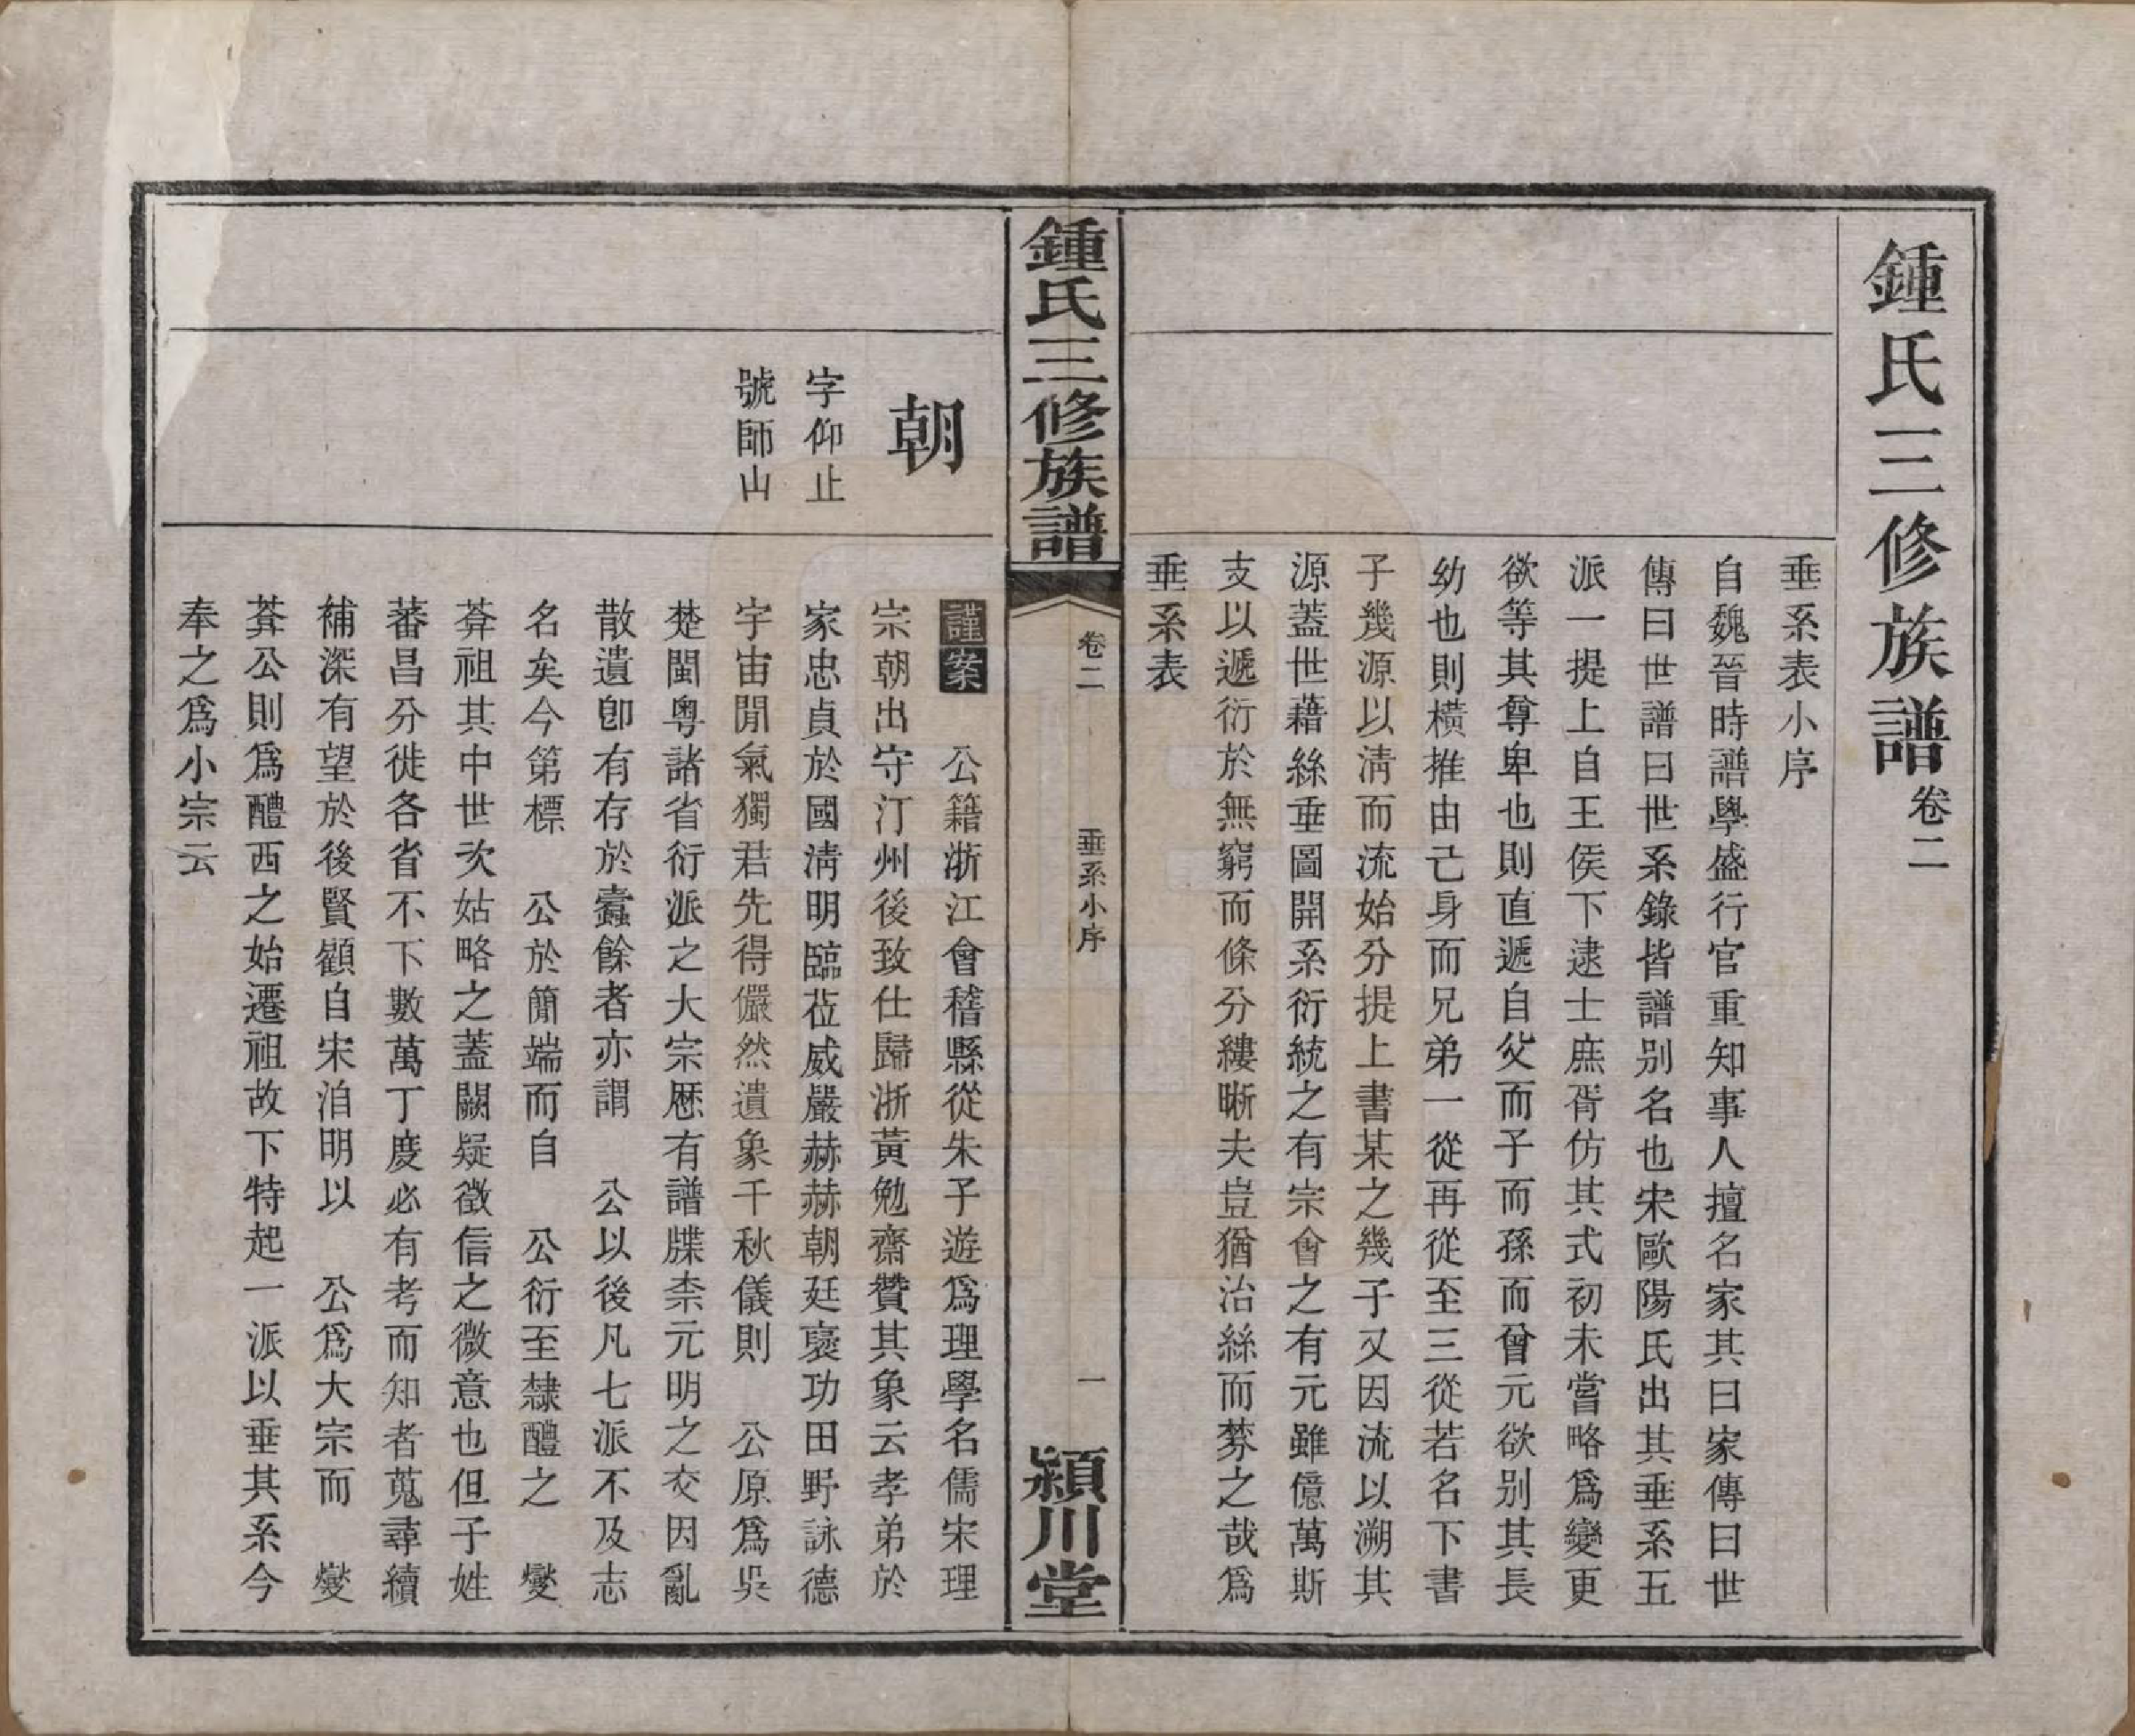 鍾氏三修族譜卷二
垂系表小序
自魏晉時譜學盛行官重知事人擅名家其曰家傳曰世
傳曰世譜曰世系錄皆譜別名也宋歐陽氏出其垂系五
派一提上自王侯下逮士庶胥仿其式初未嘗略為變更
欲等其尊卑也則直遞自父而子而孫而曾元欲别其長
幼也則橫推由己身而兄弟一從再從至三從若名下書
子幾源以清而流始分提上書某之幾子又因流以溯其
源蓋世藉絲垂圖開系衍統之有宗會之有元雖億萬斯
支以遞衍於無窮而條分縷晰夫豈猶治絲而棼之哉為
垂系表
鍾氏三修族譜
卷二
垂系小序
一
潁川堂
朝
字仰止
號師山
謹案　公籍浙江會稽縣從朱子遊為理學名儒宋理
宗朝出守汀州後致仕歸浙黃勉齋贊其象云孝弟於
家忠貞於國清明臨莅威嚴赫赫朝廷褒功田野詠德
宇宙閒氣獨君先得儼然遺象千秋儀則　公原為吳
楚閩粵諸省衍派之大宗歷有譜牒柰元明之交因亂
散遺卽有存於蠹餘者亦謂　公以後凡七派不及志
名矣今第標　公於簡端而自　公衍至隸醴之　燮
葊祖其中世次姑略之蓋闕疑徵信之微意也但子姓
蕃昌分徙各省不下數萬丁度必有考而知者蒐尋續
補深有望於後賢顧自宋洎明以　公為大宗而　燮
葊公則為醴西之始遷祖故下特起一派以垂其系今
奉之為小宗云